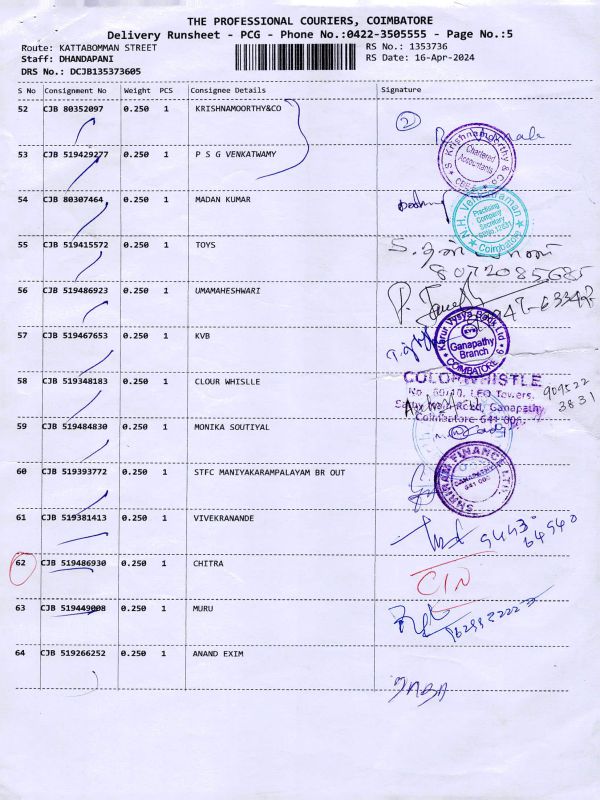 THE PROFESSIONAL COURIERS, COIMBATORE
Delivery Runsheet - PCG - Phone No.:0422-3505555 - Page No.:5
Route: KATTABOMMAN STREET RS No.: 1353736
Staff: DHANDAPANI RS Date: 16-Apr-2024
DRS No.: DCJB135373605
S No Consignment No Weight PCS Consignee Details Signature
52 CJB 80352097 0.250 1 KRISHNAMOORTHY&CO 2
S. Krishnamoorthy & Co
Chartered Accountants
53 CJB 519429277 0.250 1 P S G VENKATWAMY
54 CJB 80307464 0.250 1 MADAN KUMAR
N.H. Venkatraman
Practising Company Secretary
Coimbatore
55 CJB 519415572 0.250 1 TOYS
8072085685
56 CJB 519486923 0.250 1 UMAMAHESHWARI
57 CJB 519467653 0.250 1 KVB
Karur Vysya Bank Ltd
KVB
Ganapathy Branch
COIMBATORE
58 CJB 519348183 0.250 1 CLOUR WHISLLE
COLORWHISTLE
No. 60/10, LEO Towers,
Sathy Main Road, Ganapathy
Coimbatore 641 006
909522
3831
59 CJB 519484830 0.250 1 MONIKA SOUTIYAL
60 CJB 519393772 0.250 1 STFC MANIYAKARAMPALAYAM BR OUT
SHRIRAM FINANCE LTD.
GANAPATHY
61 CJB 519381413 0.250 1 VIVEKRANANDE
62 CJB 519486930 0.250 1 CHITRA
63 CJB 519449008 0.250 1 MURU
64 CJB 519266252 0.250 1 ANAND EXIM